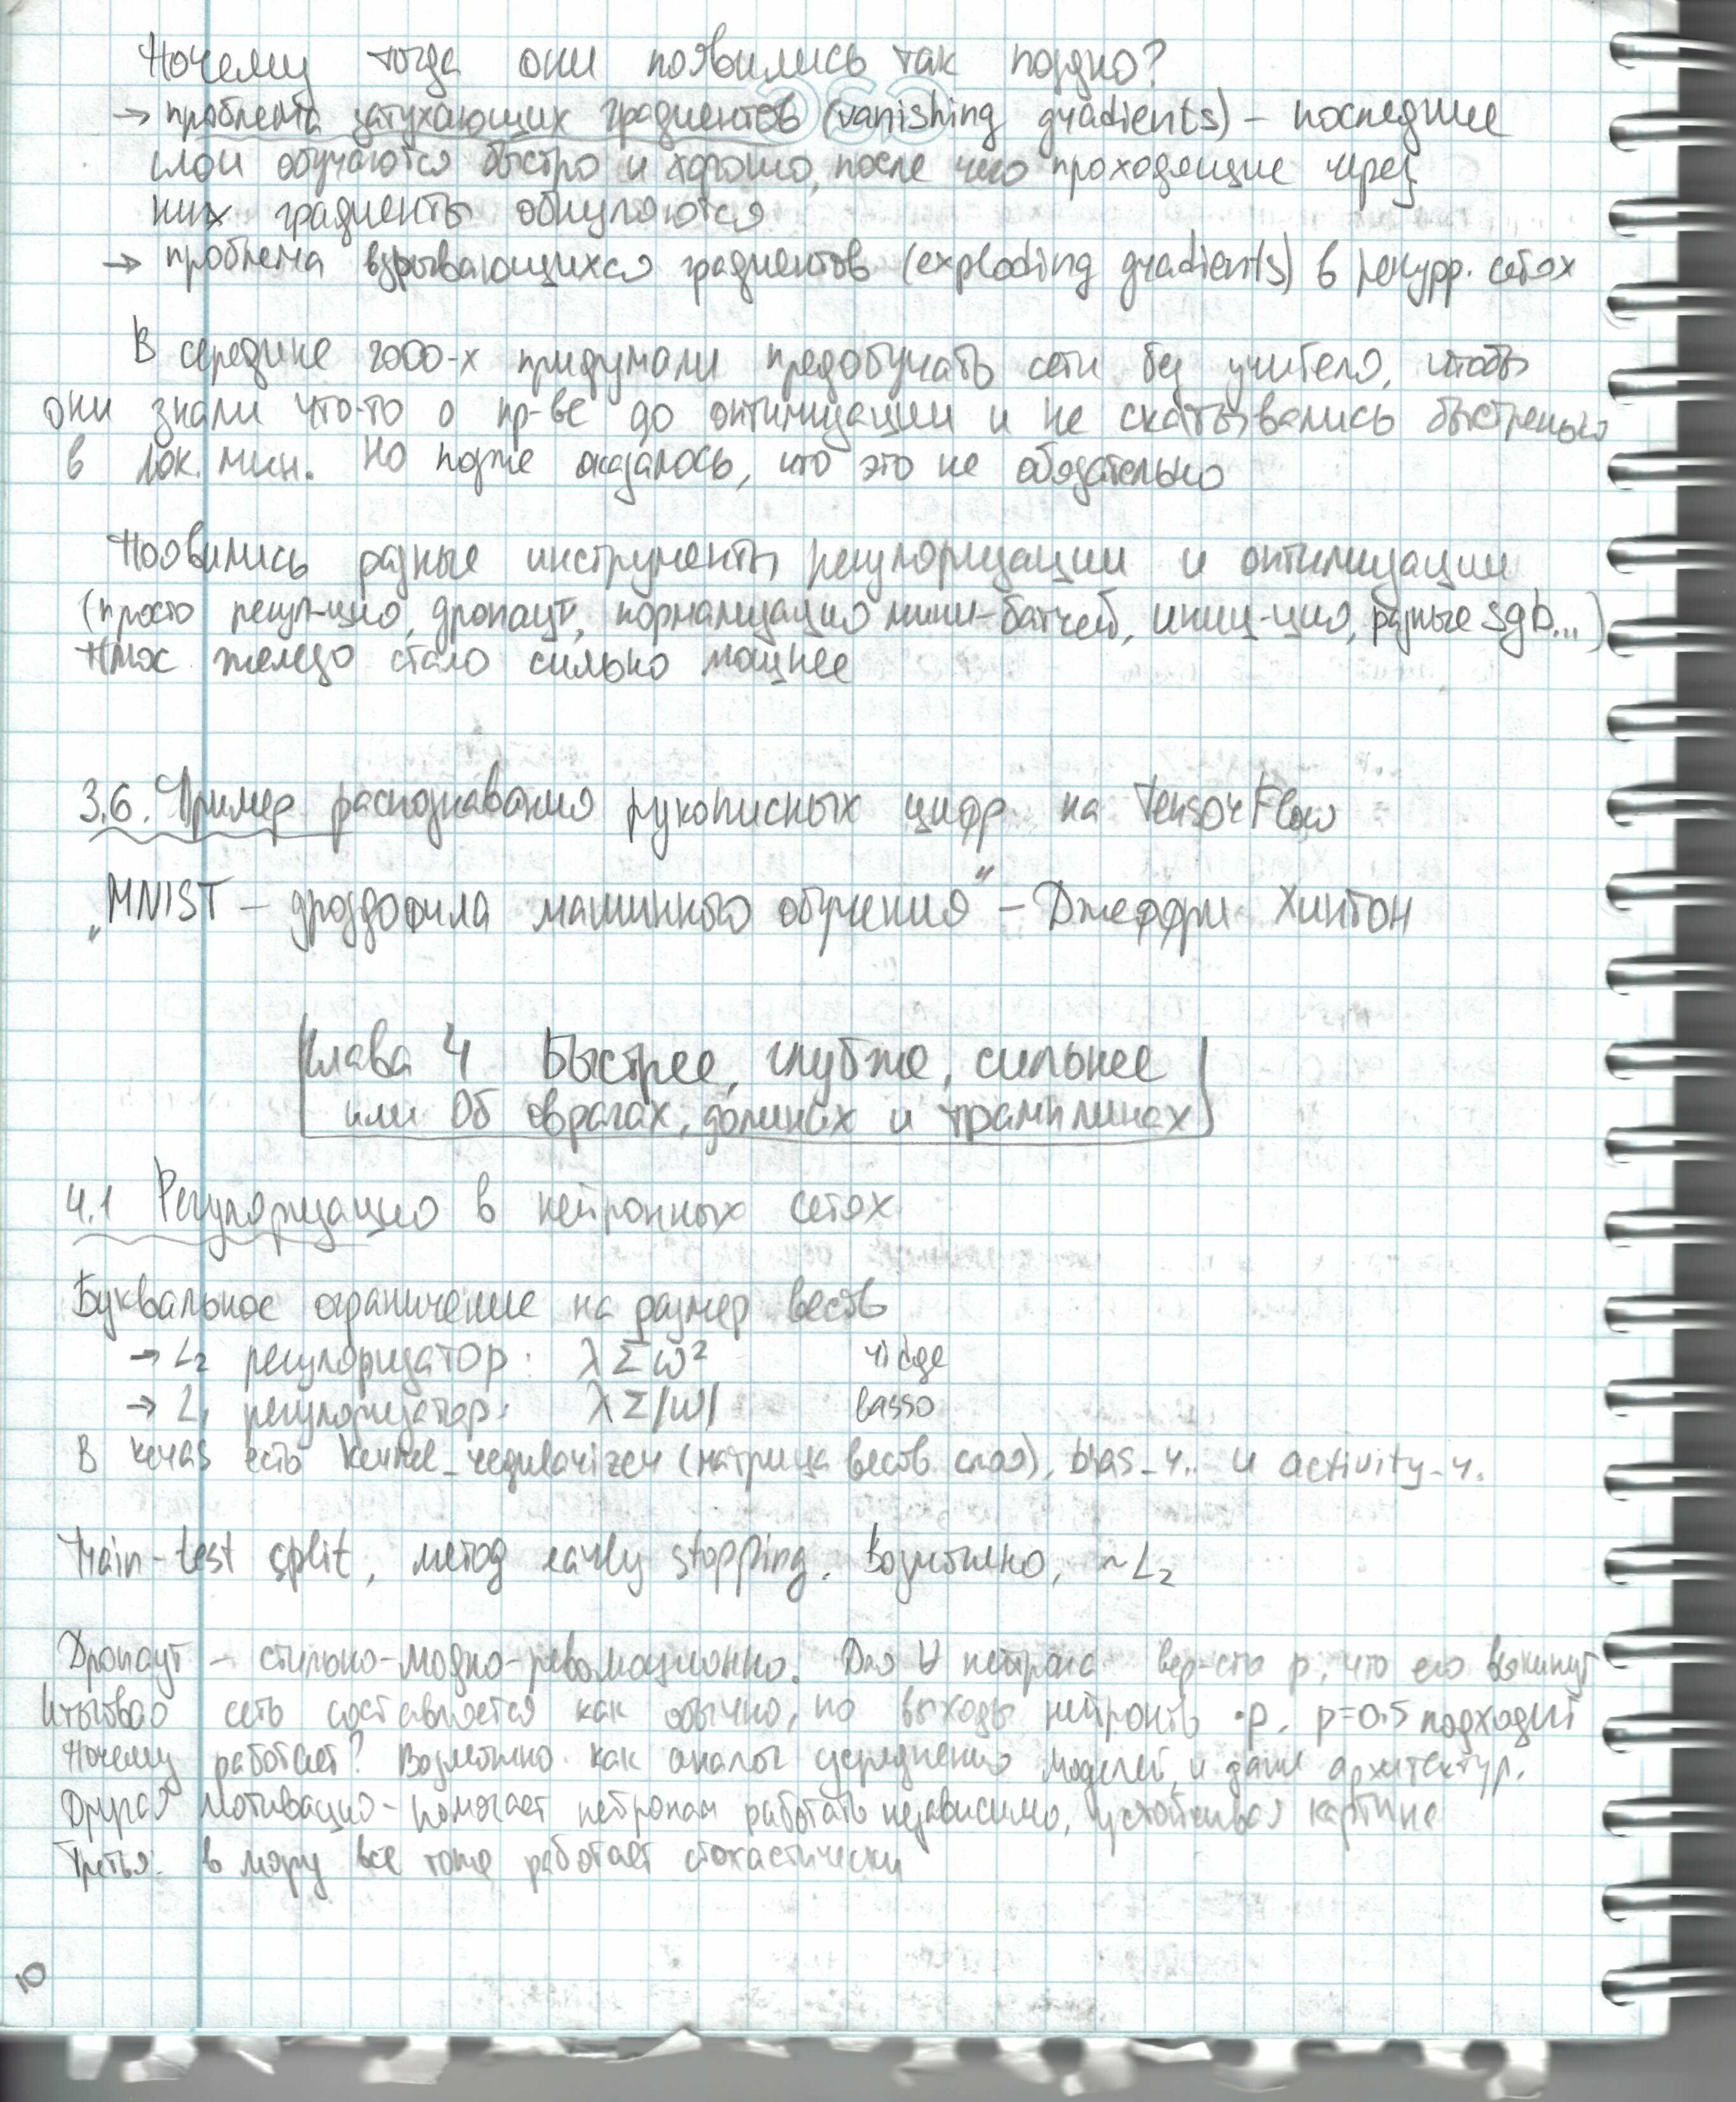 Почему тогда они появились так поздно?
→ проблема затухающих градиентов (vanishing gradients) – последние
слои обучаются быстро и хорошо, после чего проходящие через
них градиенты обнуляются
→ проблема взрывающихся градиентов (exploding gradients) в рекурр. сетях
В середине 2000-х придумали предобучать сети без учителя, чтобы
они знали что-то о пр-ве до оптимизации и не скатывались быстренько
в лок. мин. Но позже оказалось, что это не обязательно
Появились разные инструменты регуляризации и оптимизации
(просто регул-ция, дропаут, нормализация мини-батчей, иниц-ция, разные sgd...)
Плюс железо стало сильно мощнее
3.6. Пример распознавания рукописных цифр на TensorFlow
„MNIST – дрозофила машинного обучения" – Джеффри Хинтон
Глава 4 Быстрее, глубже, сильнее
или Об оврагах, долинах и трамплинах
4.1 Регуляризация в нейронных сетях
Буквальное ограничение на размер весов
→ L₂ регуляризатор: λ Σ w² ridge
→ L₁ регуляризатор: λ Σ |w| lasso
В keras есть kernel_regularizer (матрица весов слоя), bias_r.. и activity_r.
Train-test split, метод early stopping. Возможно, ~L₂
Дропаут – стильно-модно-революционно. Для ∀ нейрона вер-сть p, что его выкинут
сеть составляется как обычно, но выходы нейронов ·p. p=0.5 подходит
Почему работает? Возможно как аналог усреднения моделей и даже архитектур.
Другая мотивация – помогает нейронам работать независимо, устойчивая картина
Третья: в мозгу все тоже работает стохастически
10